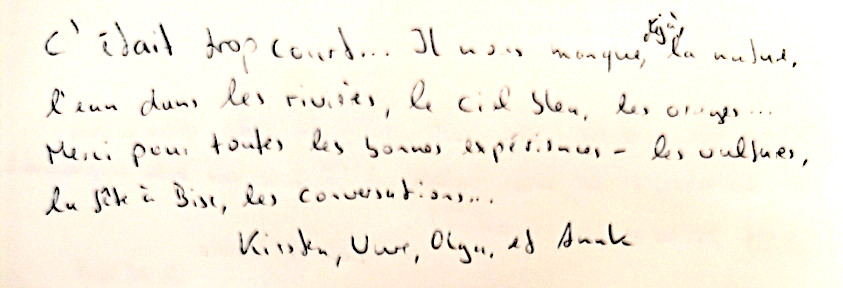 C'était trop court... Il nous manque, déjà, la nature,
l'eau dans les rivières, le ciel bleu, les orages...
Merci pour toutes les bonnes expériences - les vultures,
la fête à Bise, les conversations...
Kirsten, Uwe, Olga, et